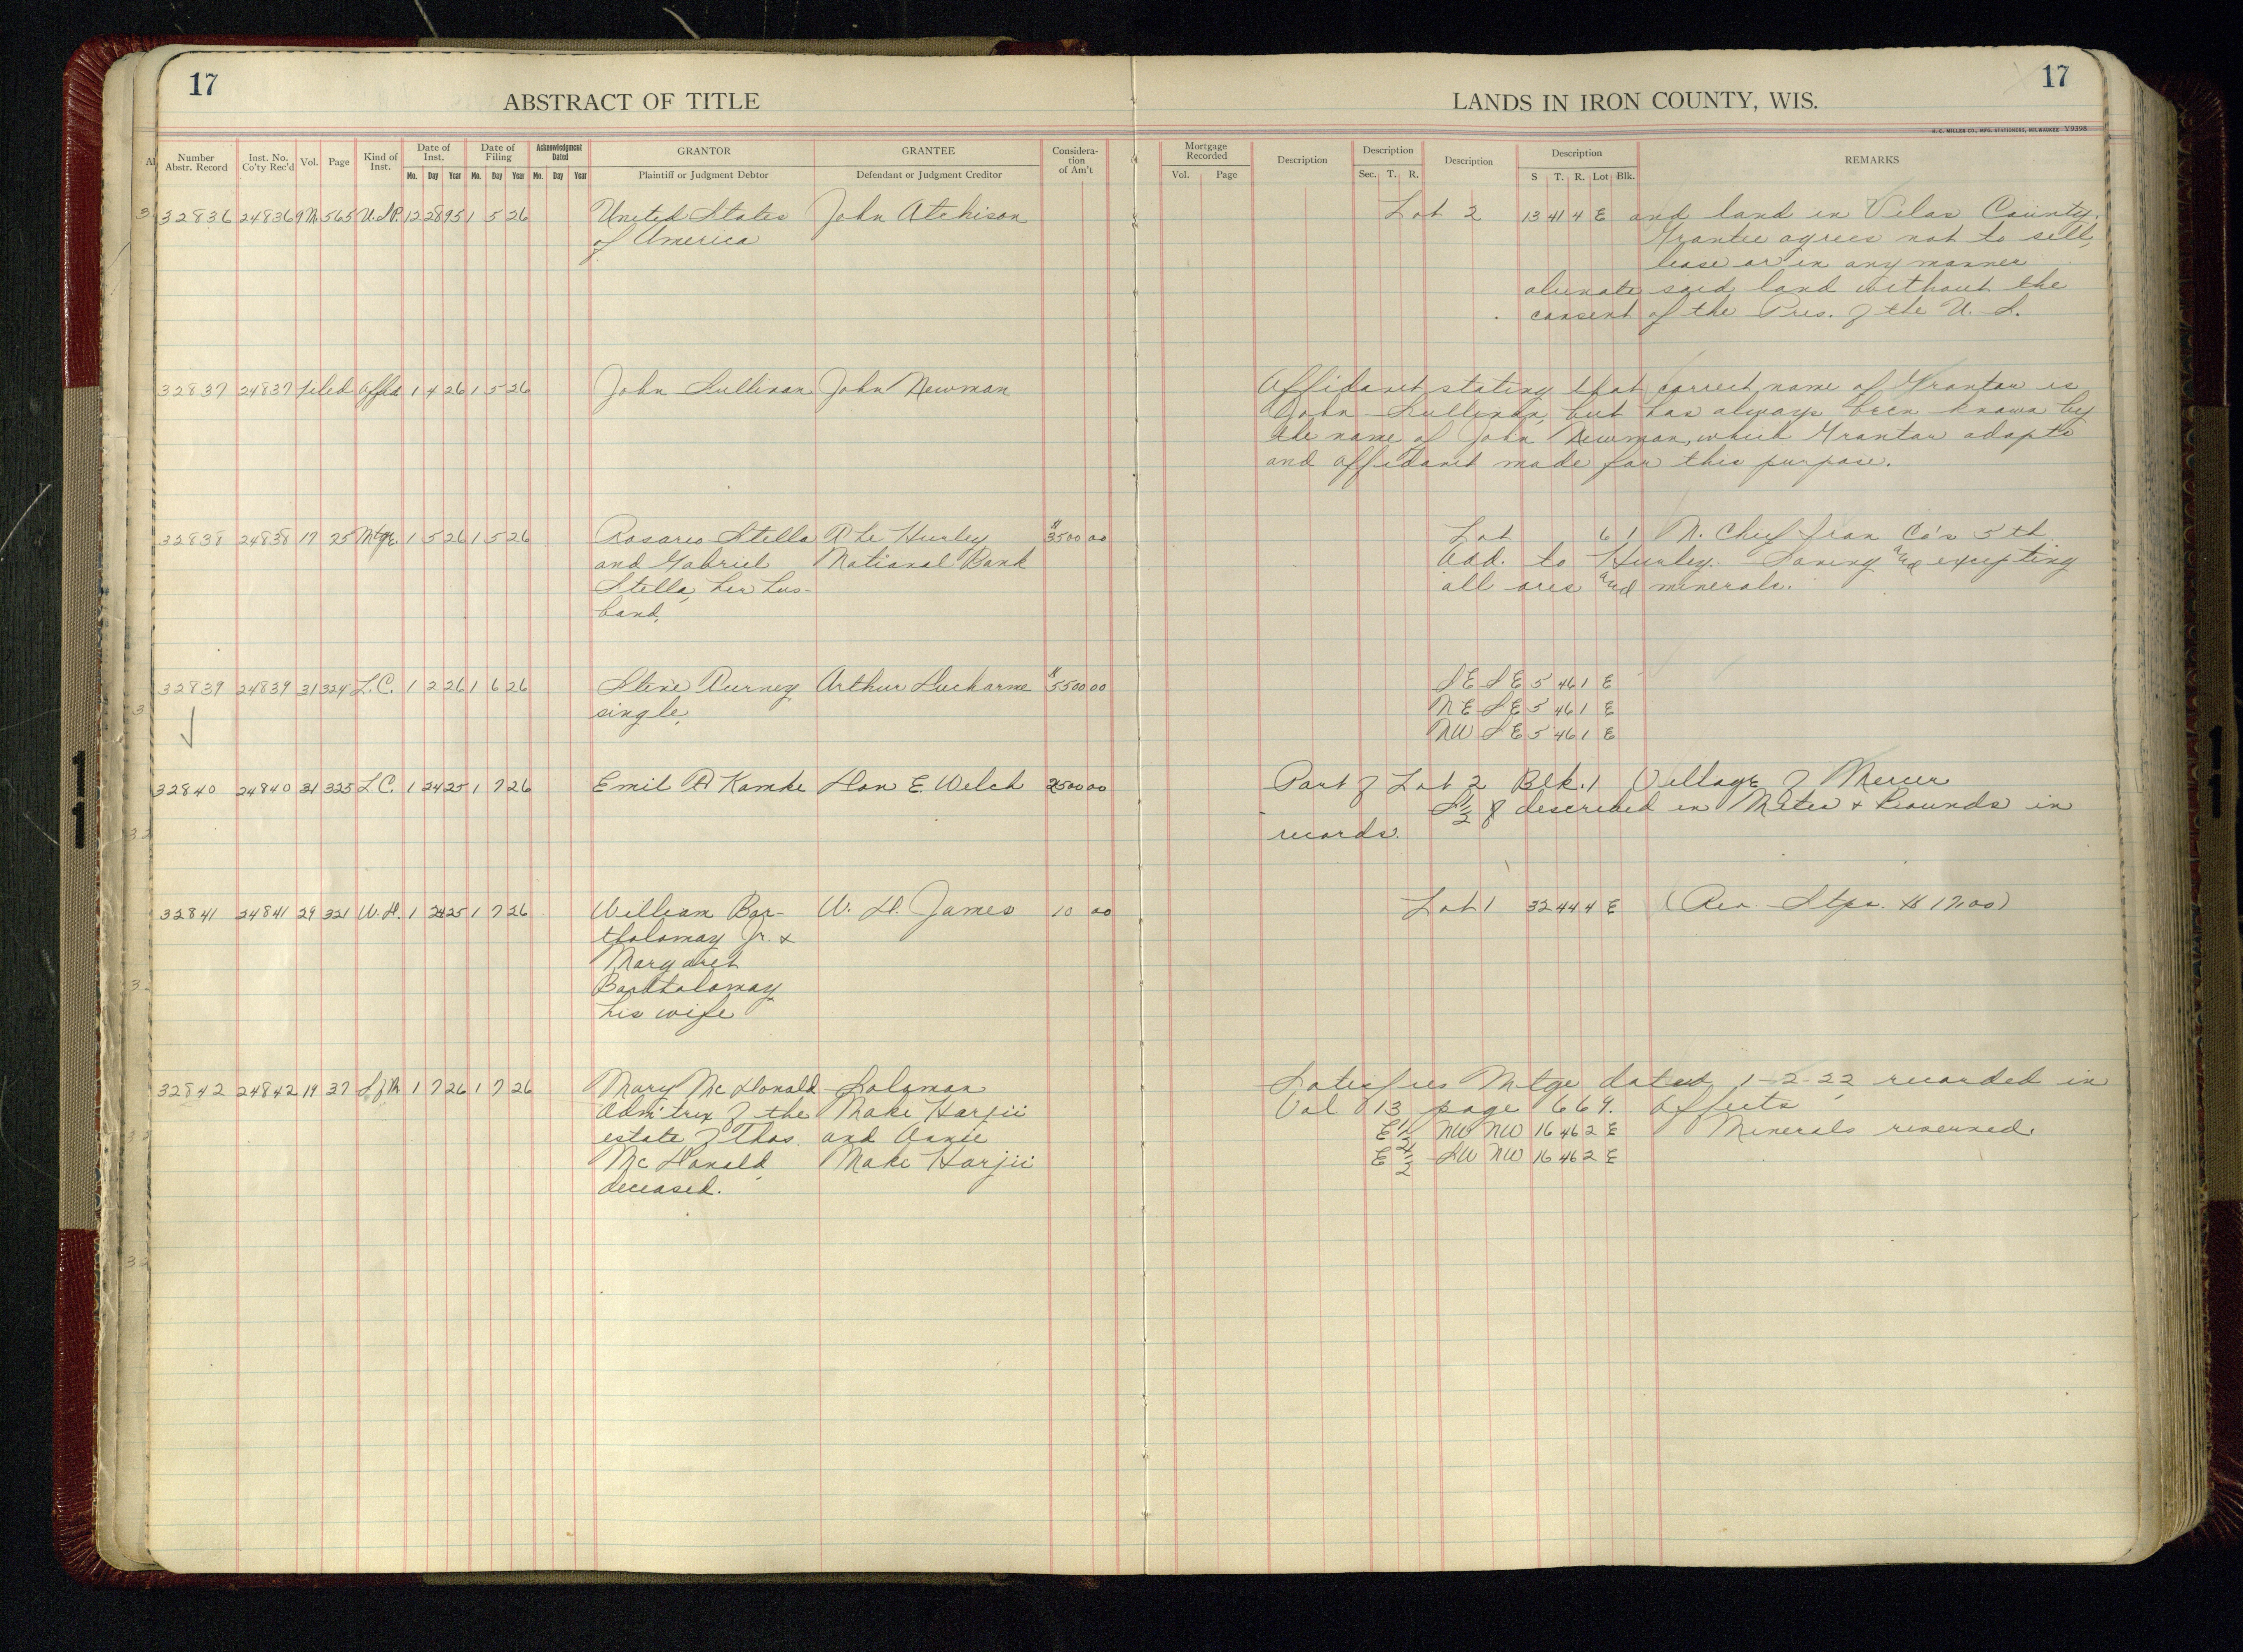 17
ABSTRACT OF TITLE
LANDS IN IRON COUNTY, WIS.
17
H. C. MILLER CO., MFG. STATIONERS, MILWAUKEE Y9398
Number Abstr. Record | Inst. No. Co'ty Rec'd | Vol. | Page | Kind of Inst. | Date of Inst. Mo. Day Year | Date of Filing Mo. Day Year | Acknowledgment Dated Mo. Day Year | GRANTOR Plaintiff or Judgment Debtor | GRANTEE Defendant or Judgment Creditor | Considera-tion of Am't | Mortgage Recorded Vol. Page | Description | Description Sec. T. R. | Description | Description S T. R. Lot Blk. | REMARKS
32836 24836 9M 565 U.S.P. 12 28 95 1 5 26 United States John Atchison Lot 2 13 41 4 E and land in Vilas County.
of America Grantee agrees not to sell,
lease or in any manner
alienate said land without the
consent of the Pres. of the U. S.
32837 24837 filed Affd 1 4 26 1 5 26 John Sullivan John Newman Affidavit stating that correct name of Grantor is
John Sullivan, but has always been known by
the name of John Newman, which Grantor adopts
and affidavit made for this purpose.
32838 24838 17 25 Mtge. 1 5 26 1 5 26 Rosario Stella The Hurley $3500 00 Lot 6 1 N. Chief Iron Co's 5th
and Gabriel National Bank Add. to Hurley. Saving and excepting
Stella, her hus- all ores and minerals.
band,
32839 24839 31 324 L.C. 1 2 26 1 6 26 Steve Durney Arthur Ducharme $5500 00 SE SE 5 46 1 E
single, NE SE 5 46 1 E
NW SE 5 46 1 E
32840 24840 31 325 L.C. 1 24 25 1 7 26 Emil A Kamke Don E Welch 2500 00 Part of Lot 2 Blk. 1 Village of Mercer
S 1/2 of described in Metes & Bounds in
records.
32841 24841 29 321 W.D. 1 24 25 1 7 26 William Bar- W. D. James 10 00 Lot 1 32 44 4 E (Rev. Stps. $17.00)
tholomay Jr. &
Margaret
Bartholomay
his wife
32842 24842 19 37 S of M 1 7 26 1 7 26 Mary McDonald Soloman Satisfies Mtge dated 1-2-22, recorded in
Admitrix of the Make Harjii Vol 13 page 669. Affects
estate of Thos. and Annie E 1/2 NW NW 16 46 2 E Minerals reserved.
McDonald, Make Harjii E 1/2 SW NW 16 46 2 E
deceased.